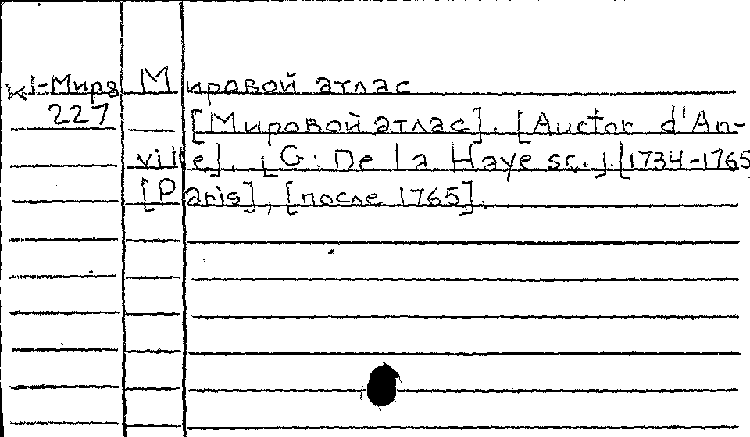 К1-Мира Мировой атлас
227 [Мировой атлас]. [Auctor d'An-
ville]. [G. De la Haye sc.] [1734-1765
[Paris], [после 1765].